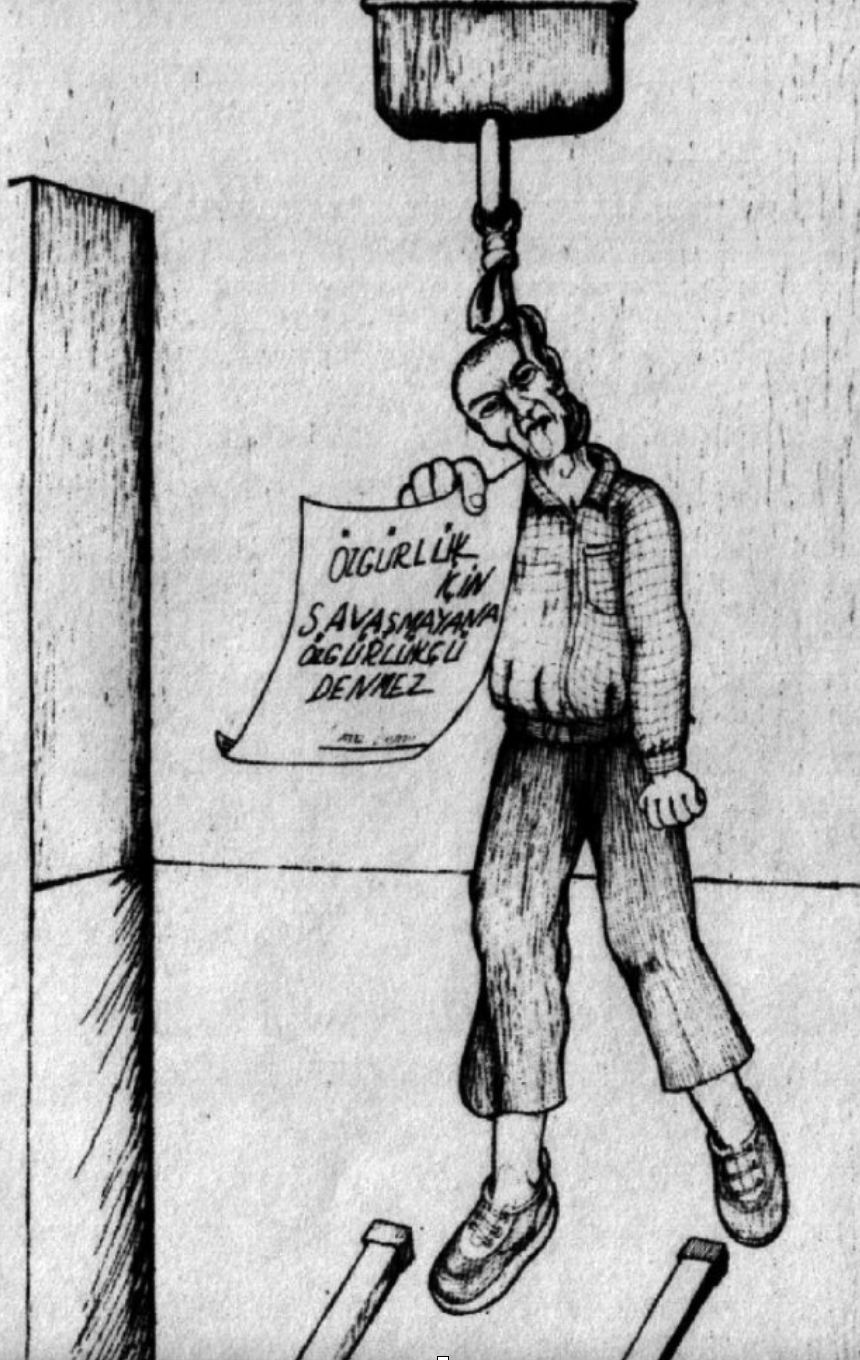 ÖZGÜRLÜK
İÇİN
SAVAŞMAYANA
ÖZGÜRLÜKÇÜ
DENMEZ